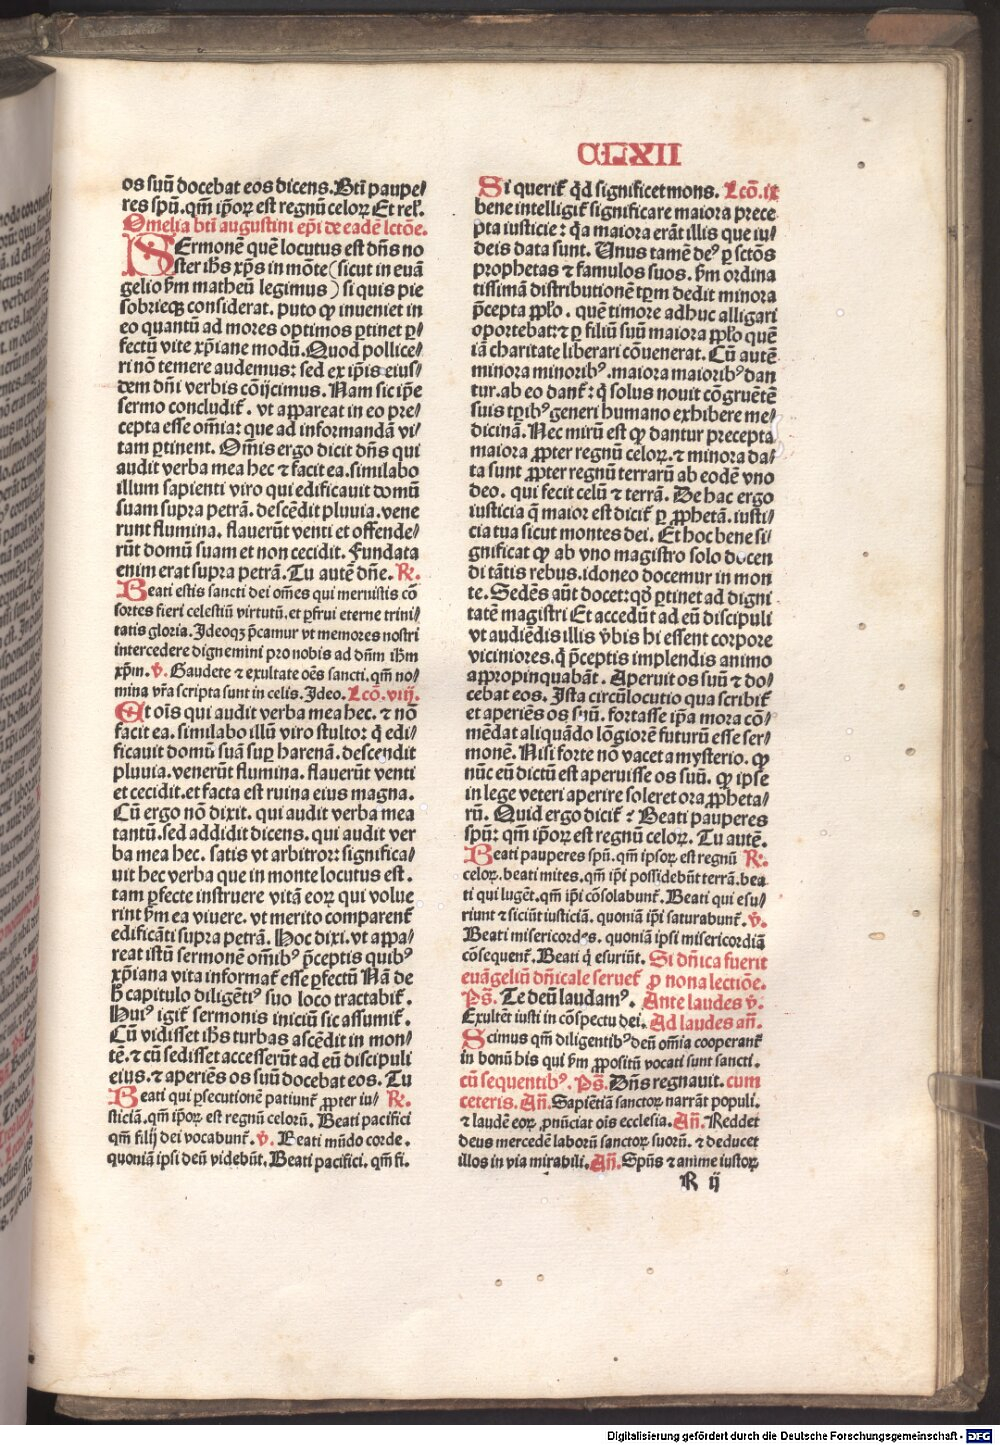 CLXII
os suū docebat eos dicens. Bt̄i paupe/
res spū. qm̄ ip̄oꝝ est regnū celoꝝ Et rel̄.
Omelia bt̄i augustini ep̄i de eadē lctōe.
SErmonē quē locutus est dn̄s no
ster ih̄s xp̄s in mōte (sicut in euā
gelio ẜm matheū legimus) si quis pie
sobrieqꝫ considerat. puto ꝙ inueniet in
eo quantū ad mores optimos ꝑtinet ꝑ/
fectū vite xp̄iane modū. Quod pollice/
ri nō temere audemus: sed ex ip̄is eius/
dem dn̄i verbis cōijcimus. Nam sic ip̄e
sermo concludit᷑. vt aꝑpareat in eo pre/
cepta esse om̄ia: que ad informandā vi/
tam ꝑtinent. Om̄is ergo dicit dn̄s qui
audit verba mea hec ⁊ facit ea. similabo
illum sapienti viro qui edificauit domū
suam supra petrā. descēdit pluuia. vene
runt flumina. flauerūt venti et offende/
rūt domū suam et non cecidit. Fundata
enim erat supra petrā. Tu autē dn̄e. R̷.
Beati estis sancti dei om̄es qui meruistis cō
sortes fieri celestiū virtutū. et ꝑfrui eterne trini/
tatis gloria. Ideoqꝫ p̄camur vt memores nostri
intercedere dignemini pro nobis ad dn̄m ih̄m
xp̄m. v̷. Gaudete ⁊ exultate oēs sancti. qm̄ no/
mina vr̄a scripta sunt in celis. Ideo. Lcō. viij.
Et oīs qui audit verba mea hec. ⁊ nō
facit ea. similabo illū viro stulto: q̇ edi/
ficauit domū suā suꝑ harenā. descendit
pluuia. venerūt flumina. flauerūt venti
et cecidit. et facta est ruina eius magna.
Cū ergo nō dixit. qui audit verba mea
tantū. sed addidit dicens. qui audit ver
ba mea hec. satis vt arbitror: significa/
uit hec verba que in monte locutus est.
tam ꝑfecte instruere vitā eoꝝ qui volue
rint ẜm ea viuere. vt merito comparent᷑
edificāti supra petrā. Hoc dixi. vt aꝑpa/
reat istū sermonē om̄ibꝰ p̄ceptis quibꝰ
xp̄iana vita informat᷑ esse ꝑfectū Nā de
h̄ capitulo diligētiꝰ suo loco tractabit᷑.
Huiꝰ igit᷑ sermonis iniciū sic assumit᷑.
Cū vidisset ih̄s turbas ascēdit in mon/
tē. ⁊ cū sedisset accesserūt ad eū discipuli
eius. ⁊ aperiēs os suū docebat eos. Tu
Beati qui ꝑsecutionē patiunt᷑ ꝓpter iu/ R̷.
sticiā. qm̄ ip̄oꝝ est regnū celorū. Beati pacifici
qm̄ filij dei vocabunt᷑. v̷. Beati mūdo corde.
quoniā ipsi deū videbūt. Beati pacifici. qm̄ fi.
Si querit᷑ qd̄ significet mons. Lcō. ix
bene intelligit᷑ significare maiora prece
pta iusticie: q̄a maiora erāt illis que iu/
deis data sunt. Unus tamē deꝰ ꝑ sctōs
prophetas ⁊ famulos suos. ẜm ordina
tissimā distributionē tꝑm dedit minora
p̄cepta ꝓplo. quē timore adhuc alligari
oportebat: ⁊ ꝑ filiū suū maiora ꝓplo quē
iā charitate liberari cōuenerat. Cū autē
minora minoribꝰ. maiora maioribꝰ dan
tur. ab eo dant᷑: q̇ solus nouit cōgruētē
suis tꝑibꝰ generi humano exhibere me/
dicinā. Nec mirū est ꝙ dantur precepta
maiora ꝓpter regnū celoꝝ. ⁊ minora da/
ta sunt ꝓpter regnū terrarū ab eodē vno
deo. qui fecit celū ⁊ terrā. De hac ergo
iusticia q̄ maior est dicit᷑ ꝑ ꝓphetā. iusti/
cia tua sicut montes dei. Et hoc bene si/
gnificat ꝙ ab vno magistro solo docen
di tātis rebus. idoneo docemur in mon
te. Sedēs aūt docet: qd̄ ꝑtinet ad digni
tatē magistri Et accedūt ad eū discipuli
vt audiēdis illis v̄bis hi essent corpore
viciniores. q̇ p̄ceptis implendis animo
aꝑpropinquabāt. Aperuit os suū ⁊ do/
cebat eos. Ista circūlocutio qua scribit᷑
et aperiēs os suū. fortasse ip̄a mora cō/
mēdat aliquādo lōgiorē futurū esse ser/
monē. Nisi forte nō vacet a mysterio. ꝙ
nūc eū dictū est aperuisse os suū. ꝙ ipse
in lege veteri aperire soleret ora ꝓpheta/
rū. Quid ergo dicit᷑ ⁊ Beati pauperes
spū: qm̄ ip̄oꝝ est regnū celoꝝ. Tu autē.
Beati pauperes spū. qm̄ ipsoꝝ est regnū R̷.
celoꝝ. beati mites. qm̄ ip̄i possidebūt terrā. bea
ti qui lugēt. qm̄ ip̄i cōsolabunt᷑. Beati qui esu/
riunt ⁊ siciūt iusticiā. quoniā ip̄i saturabunt᷑. v̷.
Beati misericordes. quoniā ipsi misericordiā
cōsequent᷑. Beati q̇ esuriūt. Si dn̄ica fuerit
euāgeliū dn̄icale seruet᷑ ꝓ nona lectiōe.
Ps̄. Te deū laudamꝰ. Ante laudes v̷.
Exultēt iusti in cōspectu dei. Ad laudes an̄.
Scimus qm̄ diligentibꝰ deū om̄ia cooperant᷑
in bonū his qui ẜm ꝓpositū vocati sunt sancti.
cū sequentibꝰ. Ps̄. Dn̄s regnauit. cum
ceteris. An̄. Sapiētiā sanctoꝝ narrāt populi.
⁊ laudē eoꝝ ꝓnūciat oīs ecclesia. An̄. Reddet
deus mercedē laborū sanctoꝝ suorū. ⁊ deducet
illos in via mirabili. An̄. Spūs ⁊ anime iustoꝝ
R ij
Digitalisierung gefördert durch die Deutsche Forschungsgemeinschaft - DFG